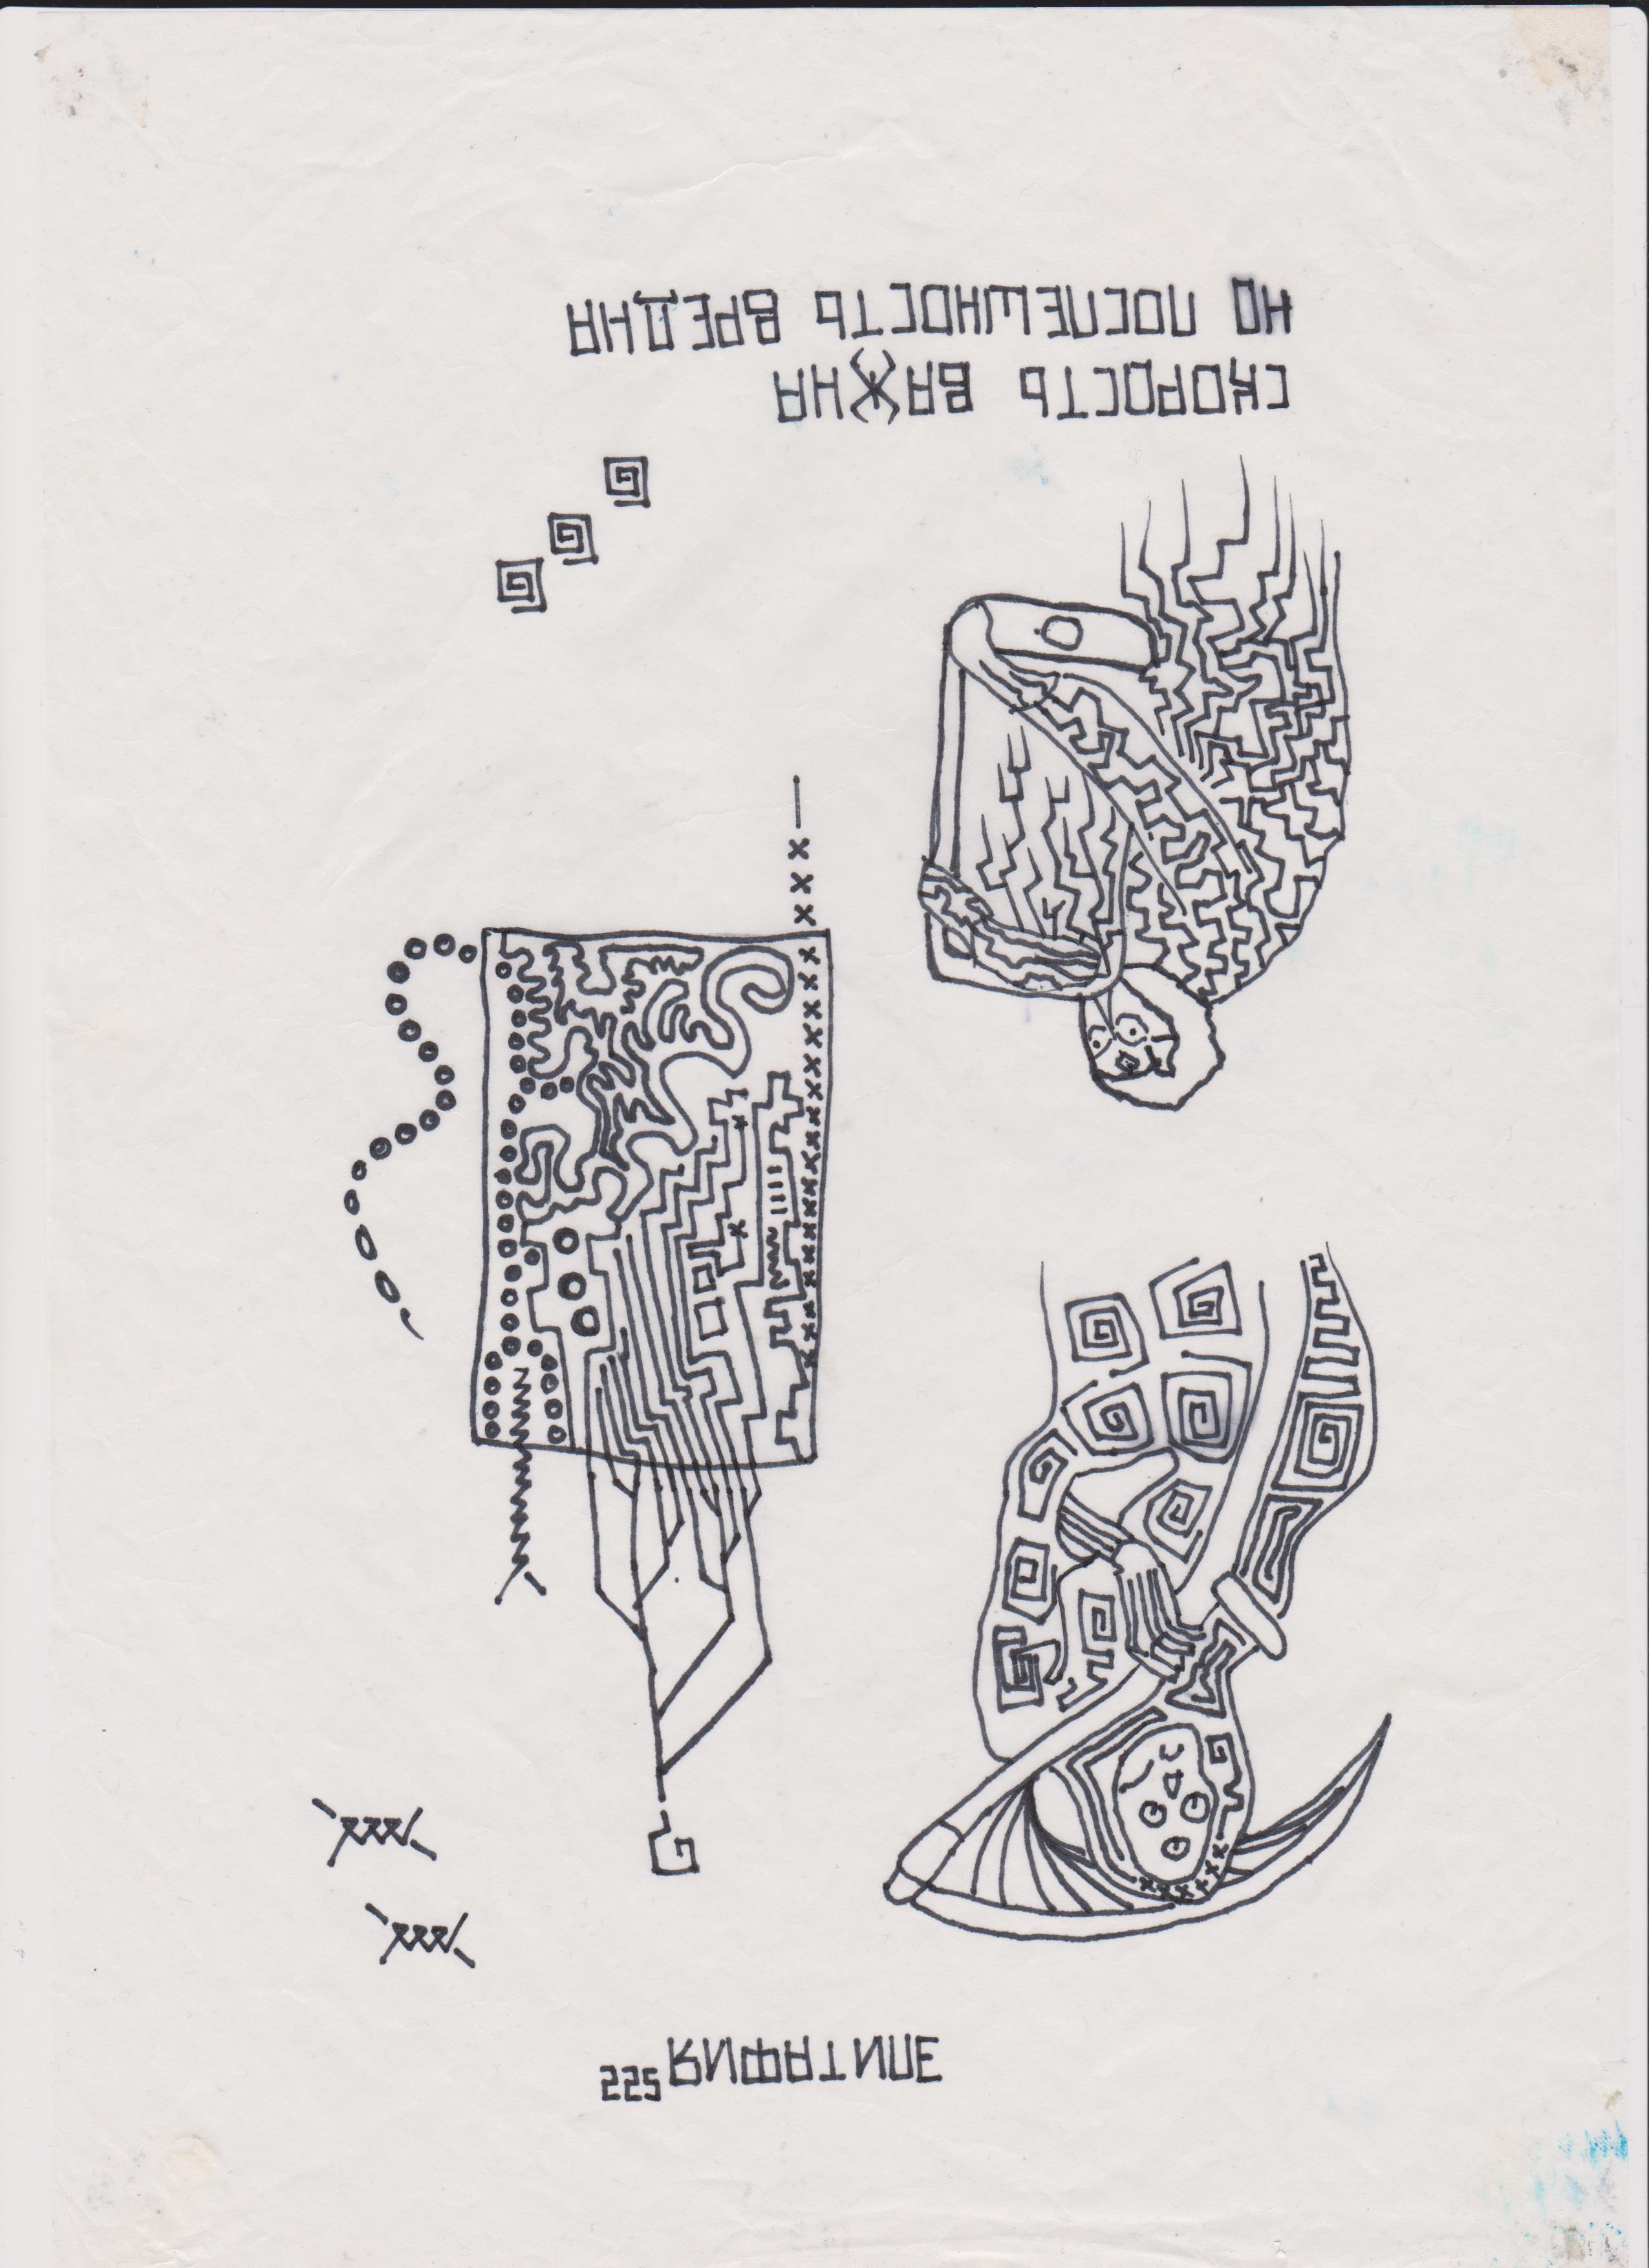 ЭПИТАФИЯ
СКОРОСТЬ ВАЖНА
НО ПОСПЕШНОСТЬ ВРЕДНА